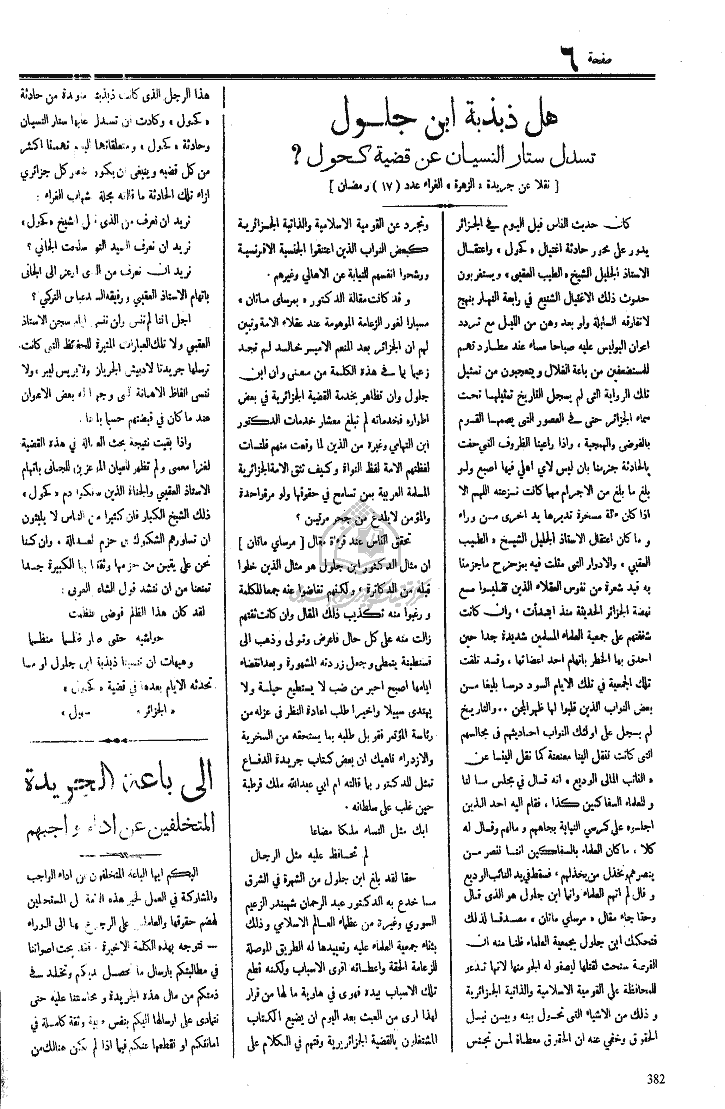 صفحة ٦
هل ذبذبة ابن جلـول
تسدل ستار النسيان عن قضية كحول ؟
[ نقلا عن جريدة « الزهرة » الغراء عدد (١٧) رمضان ]
كان حديث الناس قبل اليوم في الجزائر
يدور على محور حادثة اغتيال « كحول » واعتقال
الاستاذ الجليل الشيخ « الطيب العقبي » ويستغربون
حدوث ذلك الاغتيال الشنيع في رابعة النهار بنهج
لا تفارقه السابلة ولو بعد وهن من الليل مع تردد
اعوان البوليس عليه صباحا مساء عند مطاردتهم
للمستضعفين من باعة الغلال ويتعجبون من تمثيل
تلك الرواية التي لم يسجل التاريخ تمثيلها تحت
سماء الجزائر حتى في العصور التي يصمها القوم
بالفوضى والهمجية ، واذا راعينا الظروف التي حفت
بالحادثة جزمنا بان ليس لاي اهلي فيها اصبع ولو
بلغ ما بلغ من الاجرام مهما كانت نزعته اللهم الا
اذا كان آلة مسخرة تديرها يد اخرى من وراء
و ما كان اعتقال الاستاذ الجليل الشيخ « الطيب
العقبي » والادوار التي مثلت فيه بزحزح ما جزمنا
به قيد شعرة من نفوس العقلاء الذين
نهضة الجزائر الحديثة منذ ابتدأت ، وان كانت
شفقتهم على جمعية العلماء المسلمين شديدة جدا حين
احدق بها الخطر باتهام احد اعضائها ، وقد تلقت
تلك الجمعية في تلك الايام السود درسا بليغا من
بعض النواب الذين قلبوا لها ظهر المجن ٠٠ والتاريخ
لم يسجل على اولئك النواب احاديثهم في مجالسهم
التي كانت تنقل الينا معنعنة كما نقل الينا عن
« النائب المالي الوديع » انه قال في مجلس ما لنا
و للعلماء السفاكين كذا ، فقام اليه احد الذين
اجلسوه على كرسي النيابة بجاههم و مالهم وقال له
كلا ، ما كان العلماء بالسفاكين اننا ننصر من
ينصرهم ونخذل من يخذلهم ، فسقط في يد النائب الوديع
و قال لم اتهم العلماء وانما ابن جلول هو الذي قال
وحقا جاء مقال « مرسلي ماتان » مصدقا لذلك
فتحكك ابن جلول بجمعية العلماء ظنا منه ان
الفرصة سنحت لقتلها ليصفو له الجو منها لانها تدعو
للمحافظة على القومية الاسلامية والذاتية الجزائرية
و ذلك من الاشياء التي تحول بينه وبين نيل
الحقوق وخفي عنه ان الحقوق معطاة لمن تجنس
وتجرد عن القومية الاسلامية والذاتية الجزائرية
كبعض النواب الذين اعتنقوا الجنسية الافرنسية
ورشحوا انفسهم للنيابة عن الاهالي وغيرهم ٠
و قد كانت مقالة الدكتور « بمرسلي ماتان »
مسبارا لغور الزعامة الموهومة عند عقلاء الامة وتبين
لهم ان الجزائر بعد المنعم الامير خالد لم تجد
زعيما بما في هذه الكلمة من معنى وان ابن
جلول وان تظاهر بخدمة القضية الجزائرية في بعض
اطواره فخدماته لم تبلغ معشار خدمات الدكتور
ابن التهامي وغيره من الذين لما وقعت منهم فلتات
لفظتهم الامة لفظ النواة وكيف تثق الامة الجزائرية
المسلمة العربية بمن تسامح في حقوقها ولو مرة واحدة
والمؤمن لا يلدغ من جحر مرتين ؟
تحقق الناس عند قراءة مقال [ مرسلي ماتان ]
ان مثال الدكتور ابن جلول هو مثال الذين خلوا
قبله من الدكاترة ، ولكنهم تغاضوا عنه جمعا للكلمة
و رغبوا منه تكذيب ذلك المقال وان كانت ثقتهم
زالت منه على كل حال فاعرض وتولى وذهب الى
قسنطينة يتمطى وجعل زردته المشهورة وبعد انقضاء
ايامها اصبح احير من ضب لا يستطيع حيلة ولا
يهتدى سبيلا واخيرا طلب اعادة النظر في عزله من
رئاسة المؤتمر فقوبل طلبه بما يستحقه من السخرية
والازدراء ناهيك ان بعض كتاب جريدة الدفاع
تمثل للدكتور بما قالته ام ابي عبد الله ملك قرطبة
حين غلب على سلطانه ٠
ابك مثل النساء ملكا مضاعا
لم تحافظ عليه مثل الرجال
حقا لقد بلغ ابن جلول من الشهرة في الشرق
ما خدع به الدكتور عبد الرحمان شهبندر الزعيم
السوري وغيره من عظماء العالم الاسلامي وذلك
بثناء جمعية العلماء عليه وتعبيدها له الطريق الموصلة
للزعامة الحقة واعطائه اقوى الاسباب ولكنه قطع
تلك الاسباب بيده فهوى في هاوية ما لها من قرار
لهذا ارى من العبث بعد اليوم ان يضيع الكتاب
المشتغلون بالقضية الجزائريية وقتهم في الكلام على
هذا الرجل الذي كانت ذبذبته من حادثة
« كحول » وكادت ان تسدل عليها ستار النسيان
وحادثة « كحول » و متعلقاتها اليوم تهمنا اكثر
من كل قضية وينبغي ان يكون شعر كل جزائري
ازاء تلك الحادثة ما قالته مجلة شهاب الغراء :
نريد ان نعرف من الذي قتل الشيخ « كحول »
نريد ان نعرف اليد التي سلحت الجاني ؟
نريد ان نعرف من الذي اوعز الى الجاني
باتهام الاستاذ العقبي ورفيقه السيد عباس التركي ؟
اجل اننا لم ننس ولن ننسى ايام سجن الاستاذ
العقبي ولا تلك العبارات المثيرة للحفائظ التي كانت
ترسلها جريدتا لاديبش الجريان ولابريس ليبر ، ولا
ننسى الفاظ الاهانة التي وجهها له بعض الاعوان
عند ما كان في قبضتهم حسبما بلغنا ٠
واذا بقيت نتيجة بحث العدالة في هذه القضية
لغزا معمى ولم تظهر للعيان الموعزين للجاني باتهام
الاستاذ العقبي والجناة الذين سفكوا دم « كحول »
ذلك الشيخ الكبار فان كثيرا من الناس لا يلبثون
ان تساورهم الشكوك في حزم العدالة ، وان كنا
نحن على يقين من حزمها وثقتنا بها الكبيرة جدا
تمنعنا من ان ننشد قول الشاعر العربي :
لقد كان هذا الظلم فوضى فنظمت
حواشيه حتى صار ظلما منظما
وهيهات ان تنسينا ذبذبة ابن جلول او ما
تحدثه الايام بعدها في قضية « كحول »
« الجزائر »
الى باعة الجريدة
المتخلفين عن اداء واجبهم
اليكم ايها الباعة المتخلفون عن اداء الواجب
والمشاركة في العمل لخير هذه الامة المستحلين
لهضم حقوقها والعاملين على الرجوع بها الى الوراء
— نتوجه بهذه الكلمة الاخيرة ، فقد بحت اصواتنا
في مطالبتكم بارسال ما تحصل لديكم وتخلد في
ذمتكم من مال هذه الجريدة و محاسبتنا عليه حتى
نتمادى على ارسالها اليكم بنفس طيبة وثقة كاملة في
امانتكم او نقطعها عنكم فيما اذا لم يكن هنالك من
382